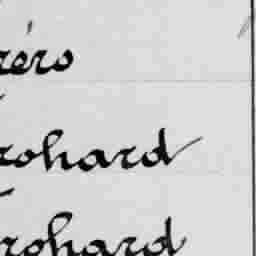 rérs
rohard
rohard